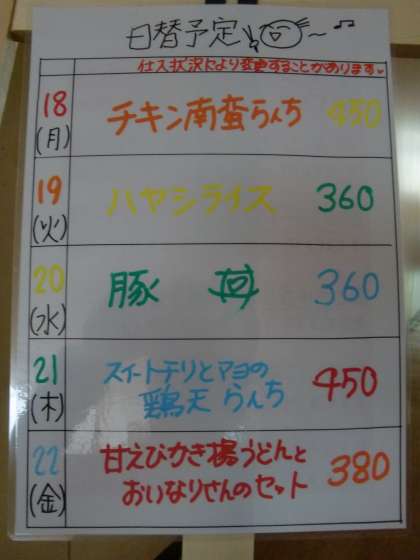 日替予定
仕入状況により変更することがあります。
18 (月) チキン南蛮らんち 450
19 (火) ハヤシライス 360
20 (水) 豚 丼 360
21 (木) スイートチリとマヨの
鶏天らんち 450
22 (金) 甘えびかき揚うどんと
おいなりさんのセット 380